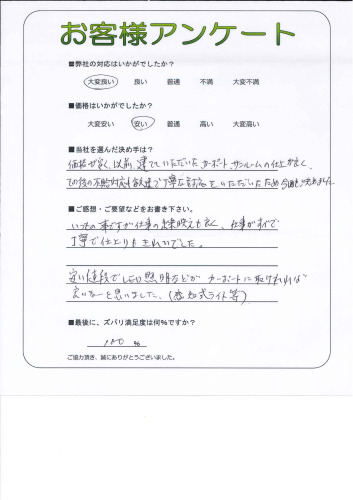 お客様アンケート
■弊社の対応はいかがでしたか？
大変良い 良い 普通 不満 大変不満
■価格はいかがでしたか？
大変安い 安い 普通 高い 大変高い
■当社を選んだ決め手は？
価格が安く、以前、建てていただいたカーポート、サンルームの仕上が良く、
その後の不具合対応も迅速で丁寧な対応をいただいていたため 今回も決めました
■ご感想・ご要望などをお書き下さい。
いつもの事ですが仕事の 良く、仕事が で
丁寧で仕上りもきれいでした。
安い値段でLED照明などが カーポートに取り付けれれば
良いなーと思いました。（感知式ライト等）
■最後に、ズバリ満足度は何％ですか？
100 ％
ご協力頂き、誠にありがとうございました。